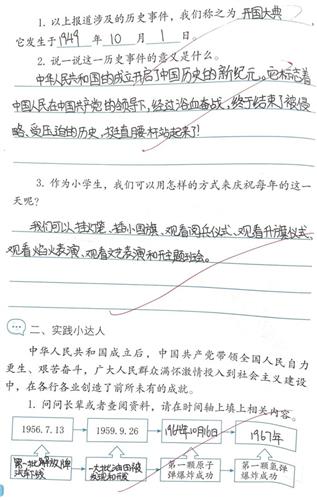 1. 以上报道涉及的历史事件，我们称之为 开国大典，
它发生于 1949 年 10 月 1 日。
2. 说一说这一历史事件的意义是什么。
中华人民共和国的成立开启了中国历史的新纪元。它标志着
中国人民在中国共产党的领导下，经过浴血奋战，终于结束了被侵
略、受压迫的历史，挺直腰杆站起来了！
3. 作为小学生，我们可以用怎样的方式来庆祝每年的这一
天呢？
我们可以挂灯笼、插小国旗、观看阅兵仪式、观看升旗仪式、
观看焰火表演、观看文艺表演和开主题班会。
二、实践小达人
中华人民共和国成立后，中国共产党带领全国人民自力
更生、艰苦奋斗，广大人民群众满怀激情投入到社会主义建设
中，在各行各业创造了前所未有的成就。
1. 问问长辈或者查阅资料，请在时间轴上填上相关内容。
1956.7.13 1959.9.26 1964年10月16日 1967年
第一批解放牌 一大批油田被 第一颗原子 第一颗氢弹
汽车下线 发现和开发 弹爆炸成功 爆炸成功